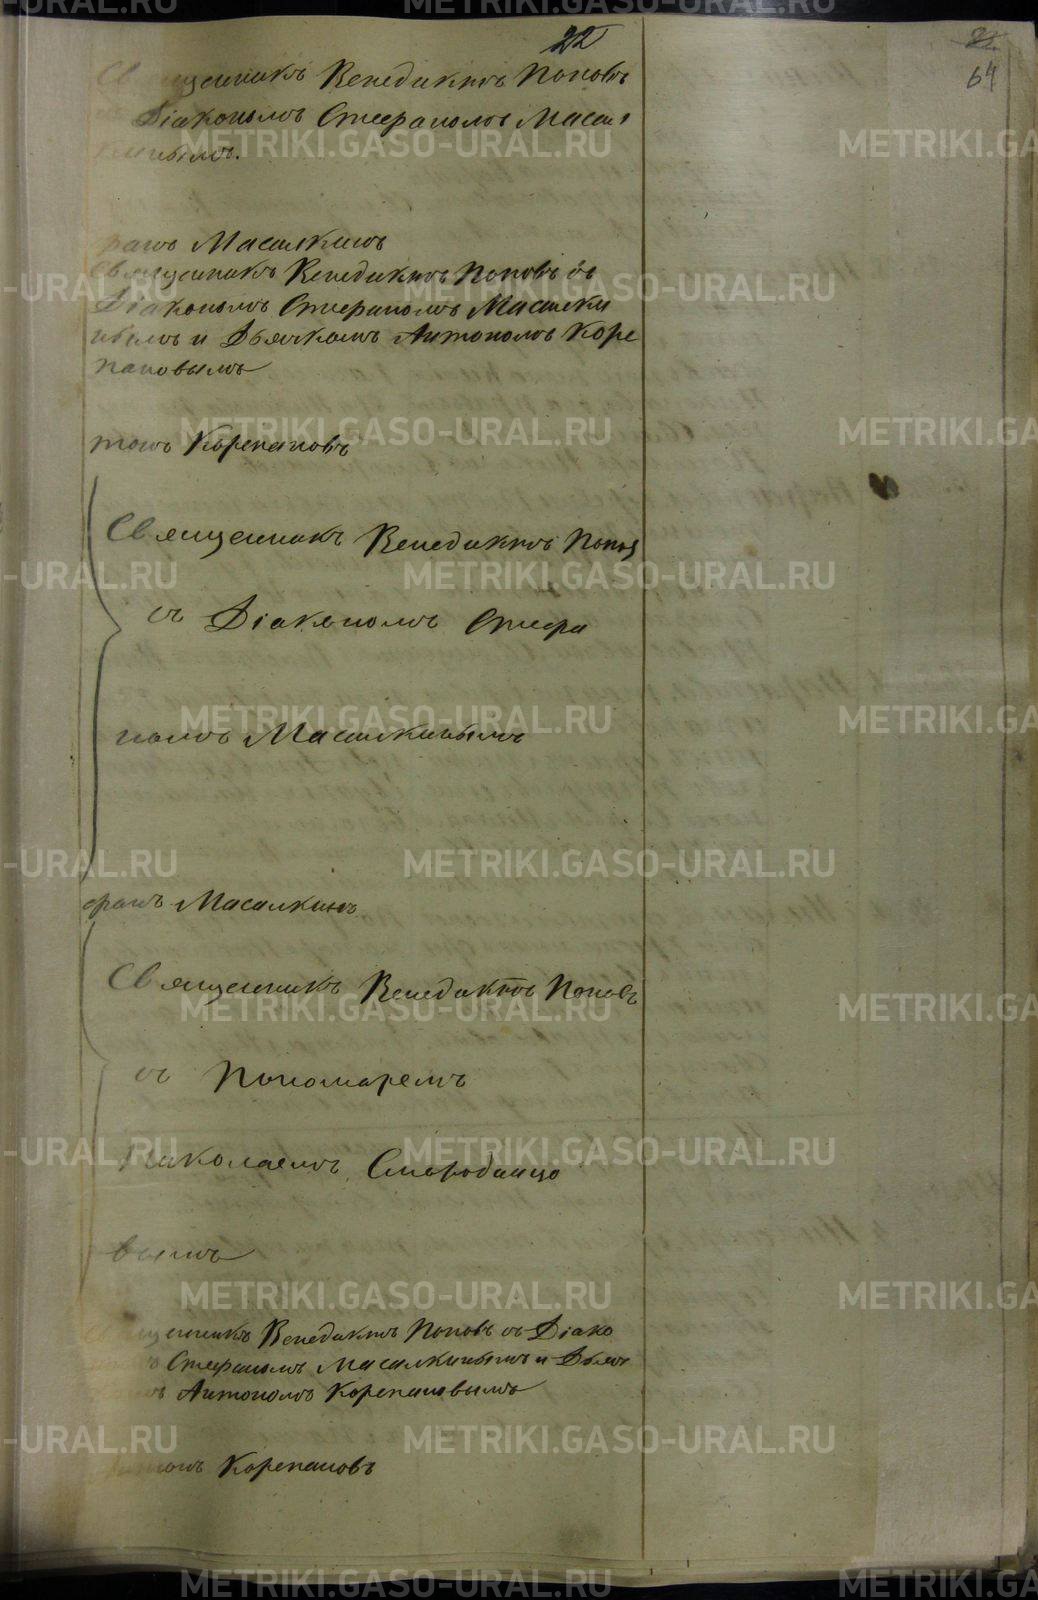 22
64
Священникъ Венедиктъ Поповъ
Діакономъ Стефаномъ Масал
кинымъ.
фанъ Масалкинъ
Священникъ Венедиктъ Поповъ съ
Діакономъ Стефаномъ Масалки
нымъ и Дьячкомъ Антономъ Коре
пановымъ
тонъ Корепановъ
Священникъ Венедиктъ Поповъ
съ Діакономъ Стефа
номъ Масалкинымъ
фанъ Масалкинъ
Священникъ Венедиктъ Поповъ
съ Пономаремъ
Николаемъ Смородинцо
вымъ
Священникъ Венедиктъ Поповъ съ Діако
номъ Стефаномъ Масалкинымъ и Дьяч
комъ Антономъ Корепановымъ
Антонъ Корепановъ